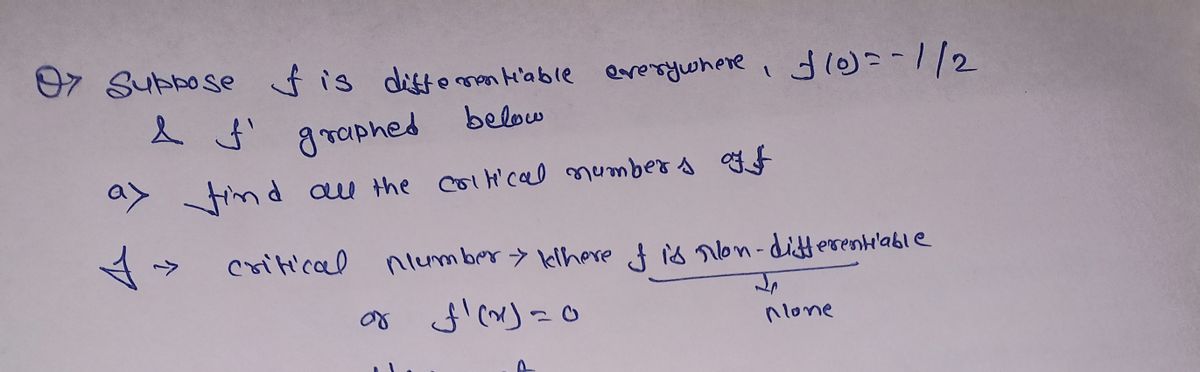 Q> Suppose f is differentiable everywhere, f(0)=-1/2
& f' graphed below
a> find all the critical numbers of f
f → critical number → Where f is Non-differentiable
or f'(x)=0 None